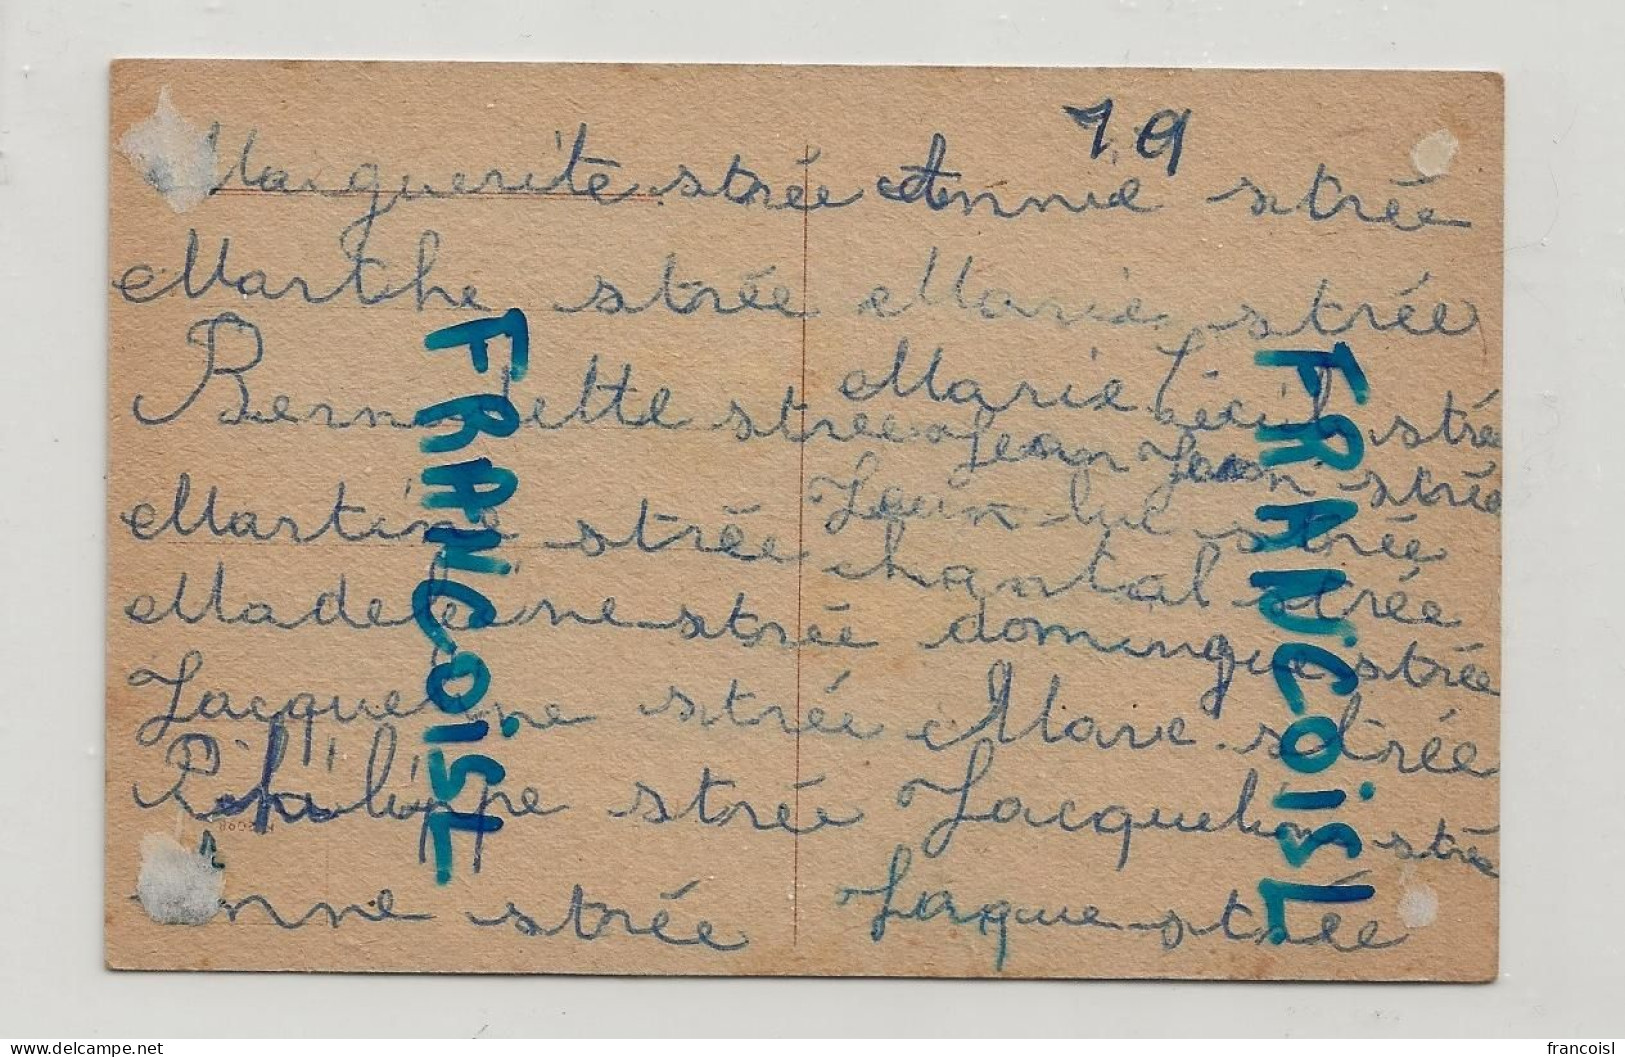 19
Marguerite strée
Marthe strée
Bernadette strée
Martine strée
Madeleine strée
Jacqueline strée
Philippe strée
Anne strée
Annie strée
Marie strée
Marie Cécile strée
Jean strée
Jean-luc strée
chantal strée
dominque strée
Marc strée
Jacqueline strée
Jaque strée
FRANCOiSL
FRANCOiSL
delcampe.net
francoisl